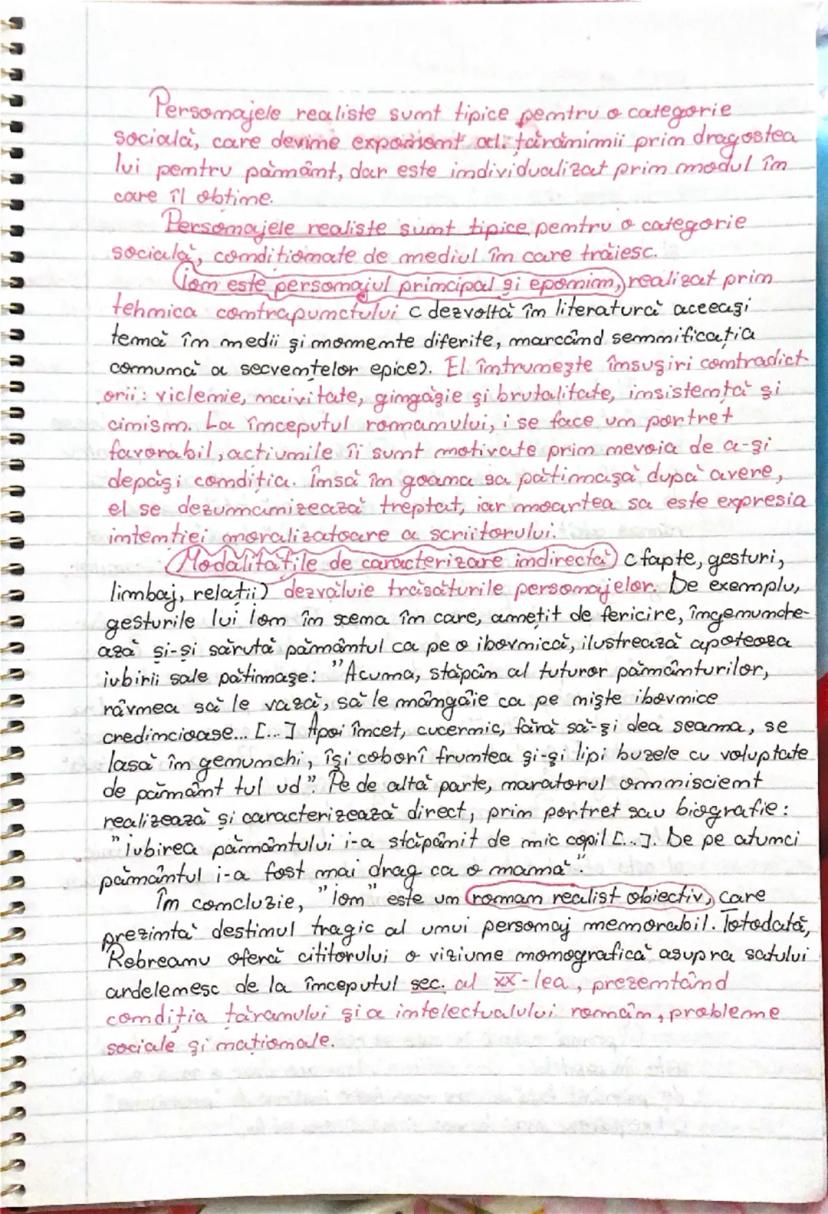 Personajele realiste sunt tipice pentru o categorie
socială, care devine exponent al țărănimii prin dragostea
lui pentru pământ, dar este individualizat prin modul în
care îl obține.
Personajele realiste sunt tipice pentru o categorie
socială, condiționate de mediul în care trăiesc.
Ion este personajul principal și eponim, realizat prin
tehnica contrapunctului (dezvoltă în literatură aceeași
temă în medii și momente diferite, marcând semnificația
comună a secvențelor epice). El întrunește însușiri contradict-
orii: viclenie, naivitate, gingășie și brutalitate, insistență și
cinism. La începutul romanului, i se face un portret
favorabil, acțiunile îi sunt motivate prin nevoia de a-și
depăși condiția. Însă în goana sa pătimașă după avere,
el se dezumanizează treptat, iar moartea sa este expresia
intenției moralizatoare a scriitorului.
Modalitățile de caracterizare indirectă (fapte, gesturi,
limbaj, relații) dezvăluie trăsăturile personajelor. De exemplu,
gesturile lui Ion în scena în care, amețit de fericire, îngenunche-
ază și-și sărută pământul ca pe o ibovnică, ilustrează apoteoza
iubirii sale pătimașe: "Acuma, stăpân al tuturor pământurilor,
râvnea să le vază, să le mângâie ca pe niște ibovnice
credincioase... [...] Apoi încet, cucernic, fără să-și dea seama, se
lasă în genunchi, își coborî fruntea și-și lipi buzele cu voluptate
de pământ tul ud". Pe de altă parte, naratorul omniscient
realizează și caracterizează direct, prin portret sau biografie:
"iubirea pământului i-a stăpânit de mic copil [...]. De pe atunci
pământul i-a fost mai drag ca o mamă".
În concluzie, "Ion" este un roman realist obiectiv, care
prezintă destinul tragic al unui personaj memorabil. Totodată,
Rebreanu oferă cititorului o viziune monografică asupra satului
ardelenesc de la începutul sec. al XX-lea, prezentând
condiția țăranului și a intelectualului român, probleme
sociale și naționale.